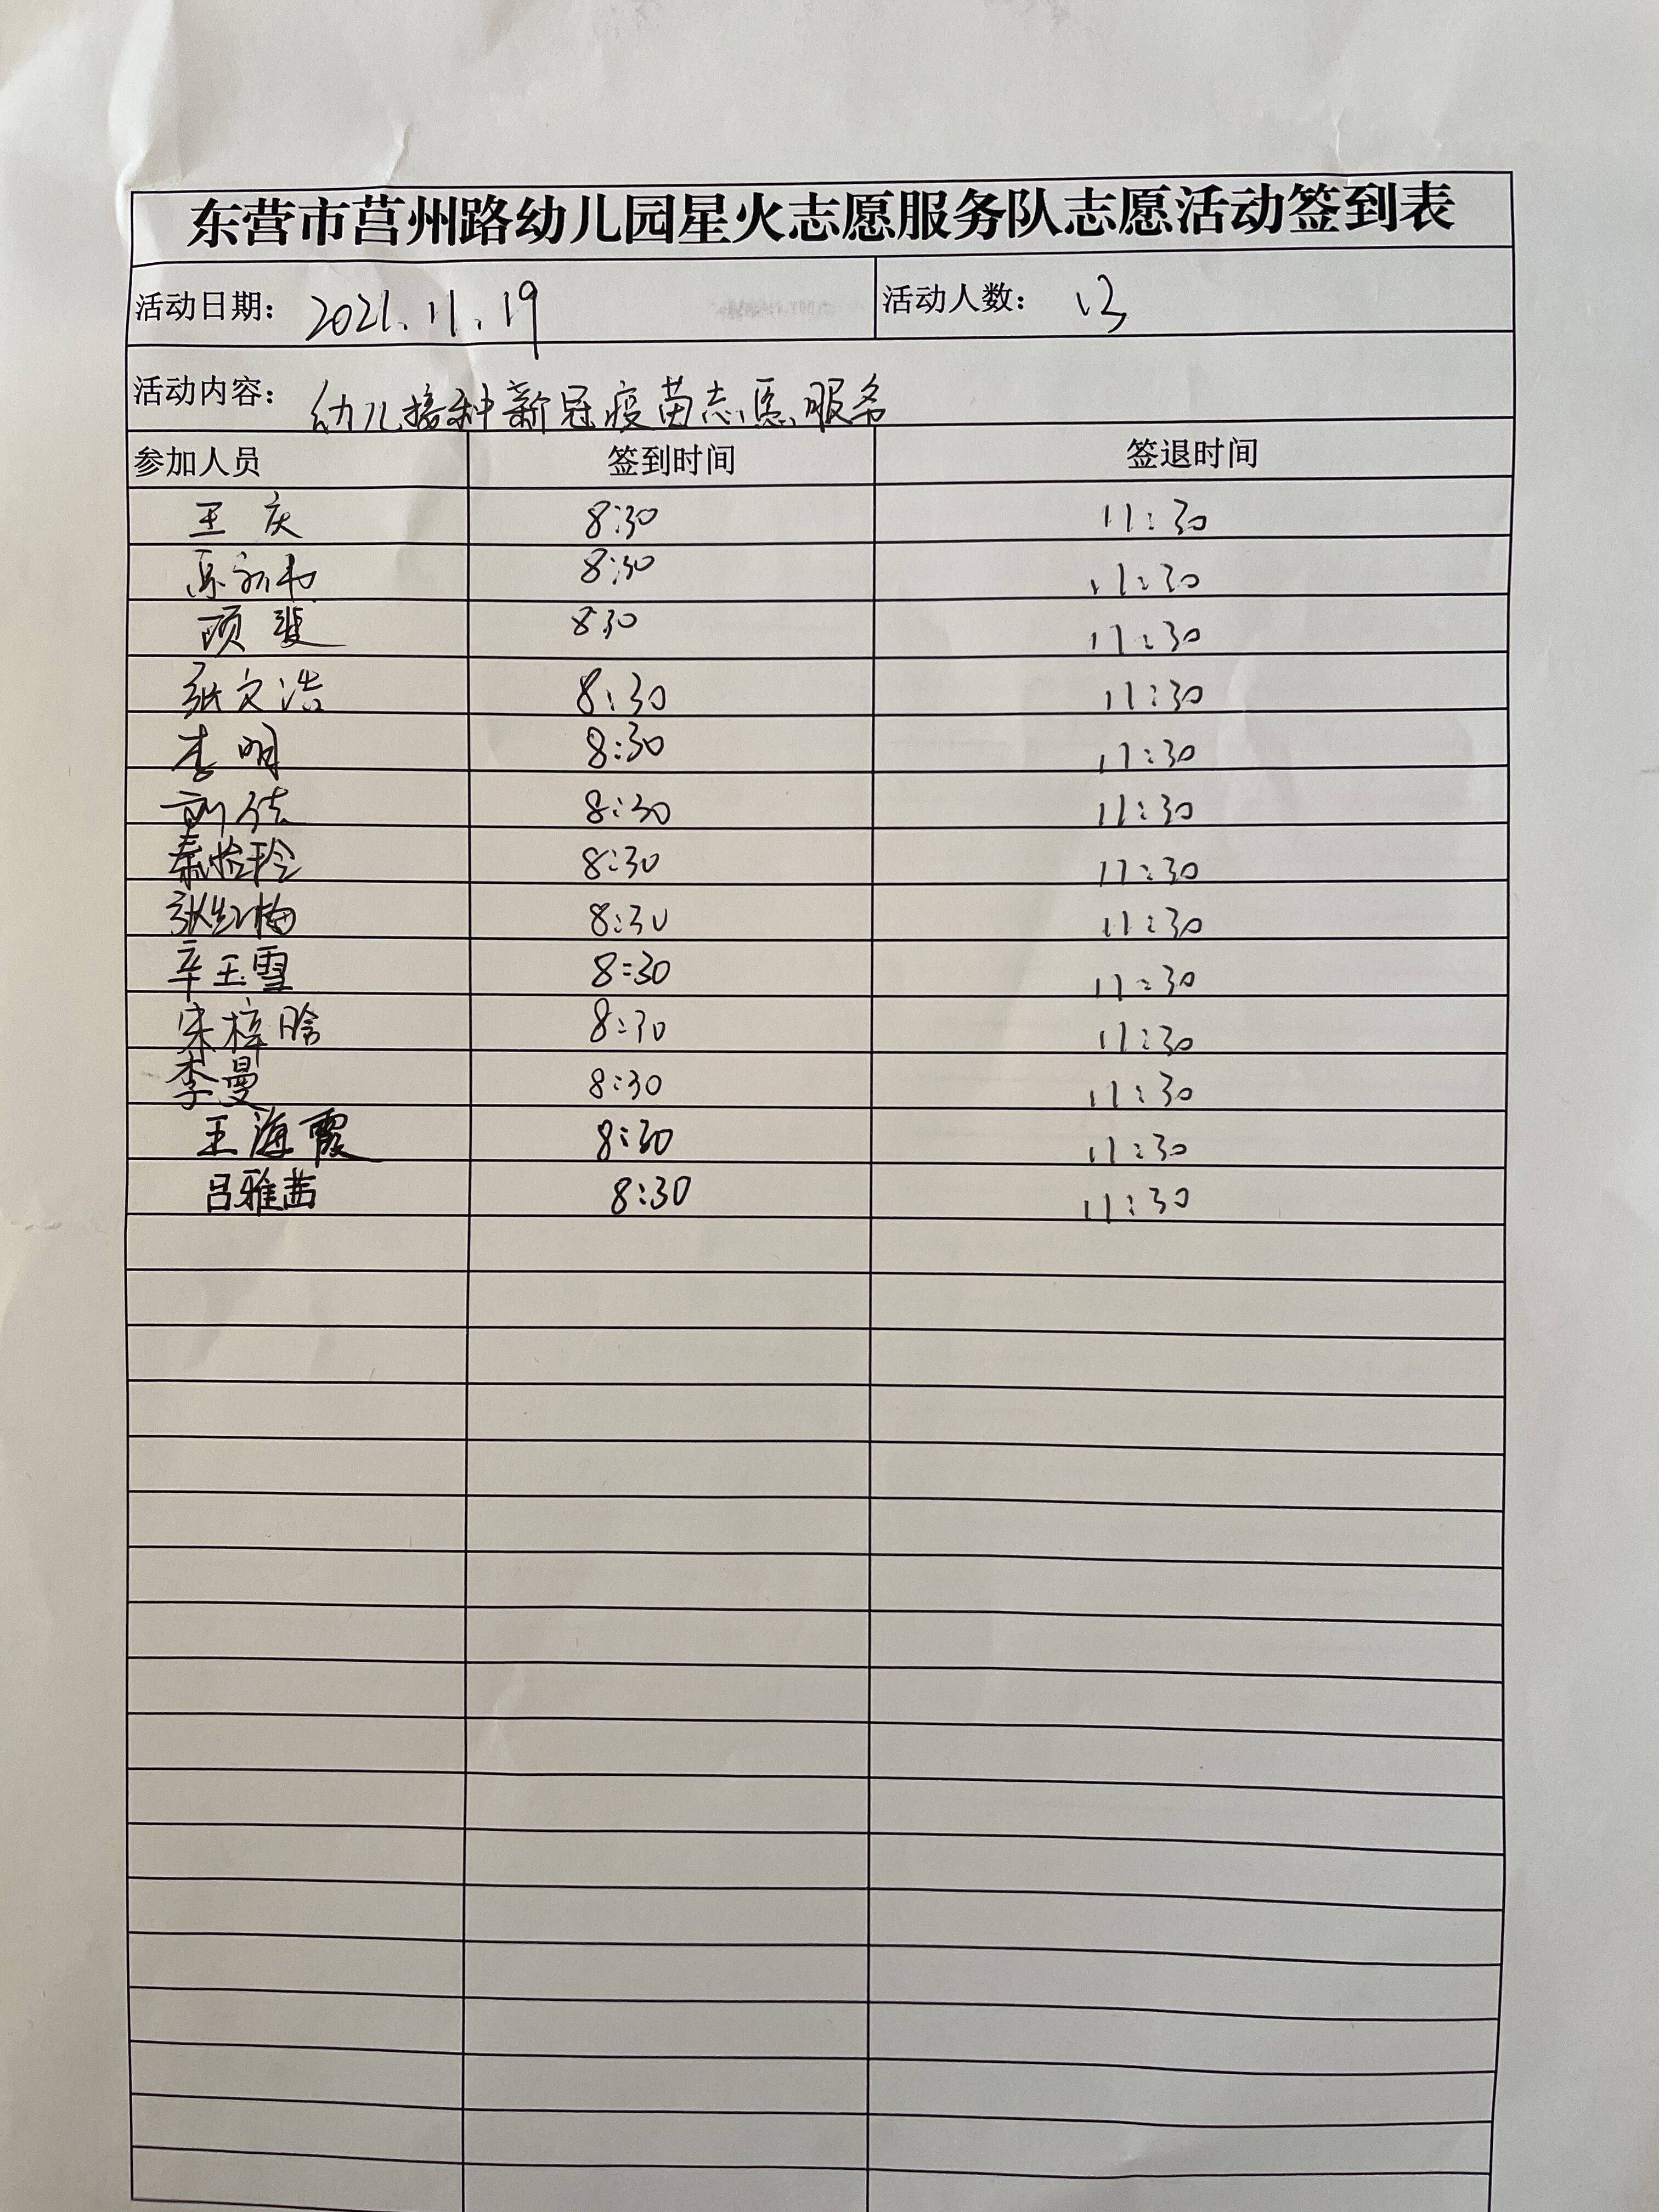 东营市莒州路幼儿园星火志愿服务队志愿活动签到表
活动日期： 2021.11.19 活动人数： 13
活动内容： 幼儿接种新冠疫苗志愿服务
参加人员 签到时间 签退时间
王庆 8:30 11:30
8:30 11:30
项斐 8:30 11:30
张文浩 8:30 11:30
李明 8:30 11:30
8:30 11:30
秦怡玲 8:30 11:30
张红梅 8:30 11:30
辛玉雪 8:30 11:30
宋梓晗 8:30 11:30
李曼 8:30 11:30
王海霞 8:30 11:30
吕雅茜 8:30 11:30